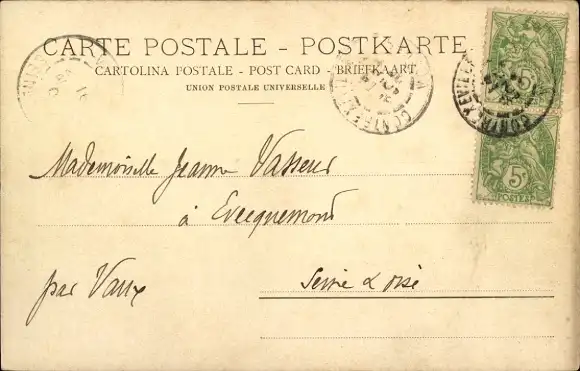 CARTE POSTALE - POSTKARTE
CARTOLINA POSTALE - POST CARD - BRIEFKAART
UNION POSTALE UNIVERSELLE
5c
POSTES
Mademoiselle Jeanne Vasseur
à Evecquemond
par Vaux
Seine & Oise